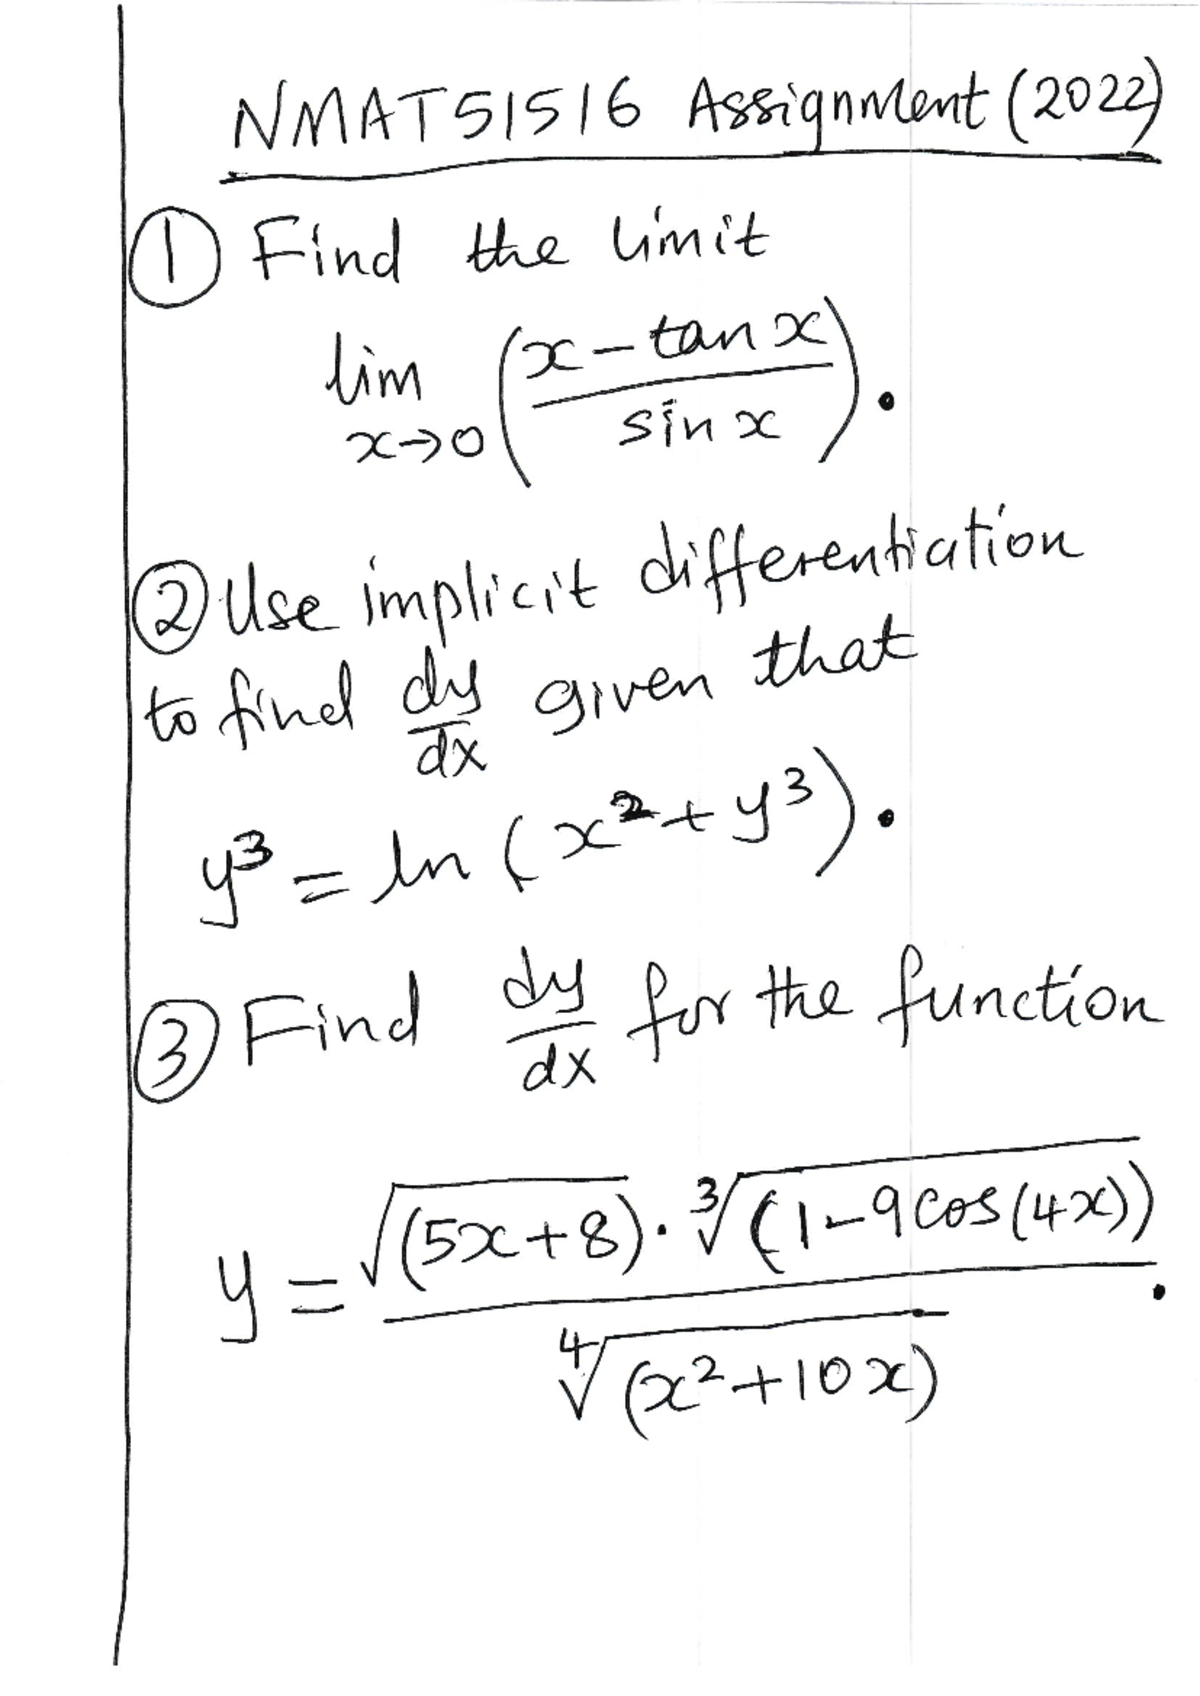 NMAT51516 Assignment (2022)
① Find the limit
lim x→0 ((x - tan x)/(sin x)).
② Use implicit differentiation
to find dy/dx given that
y³ = ln (x² + y³).
③ Find dy/dx for the function
y = (√(5x+8) · ³√(1-9cos(4x)))/(⁴√(x²+10x)).